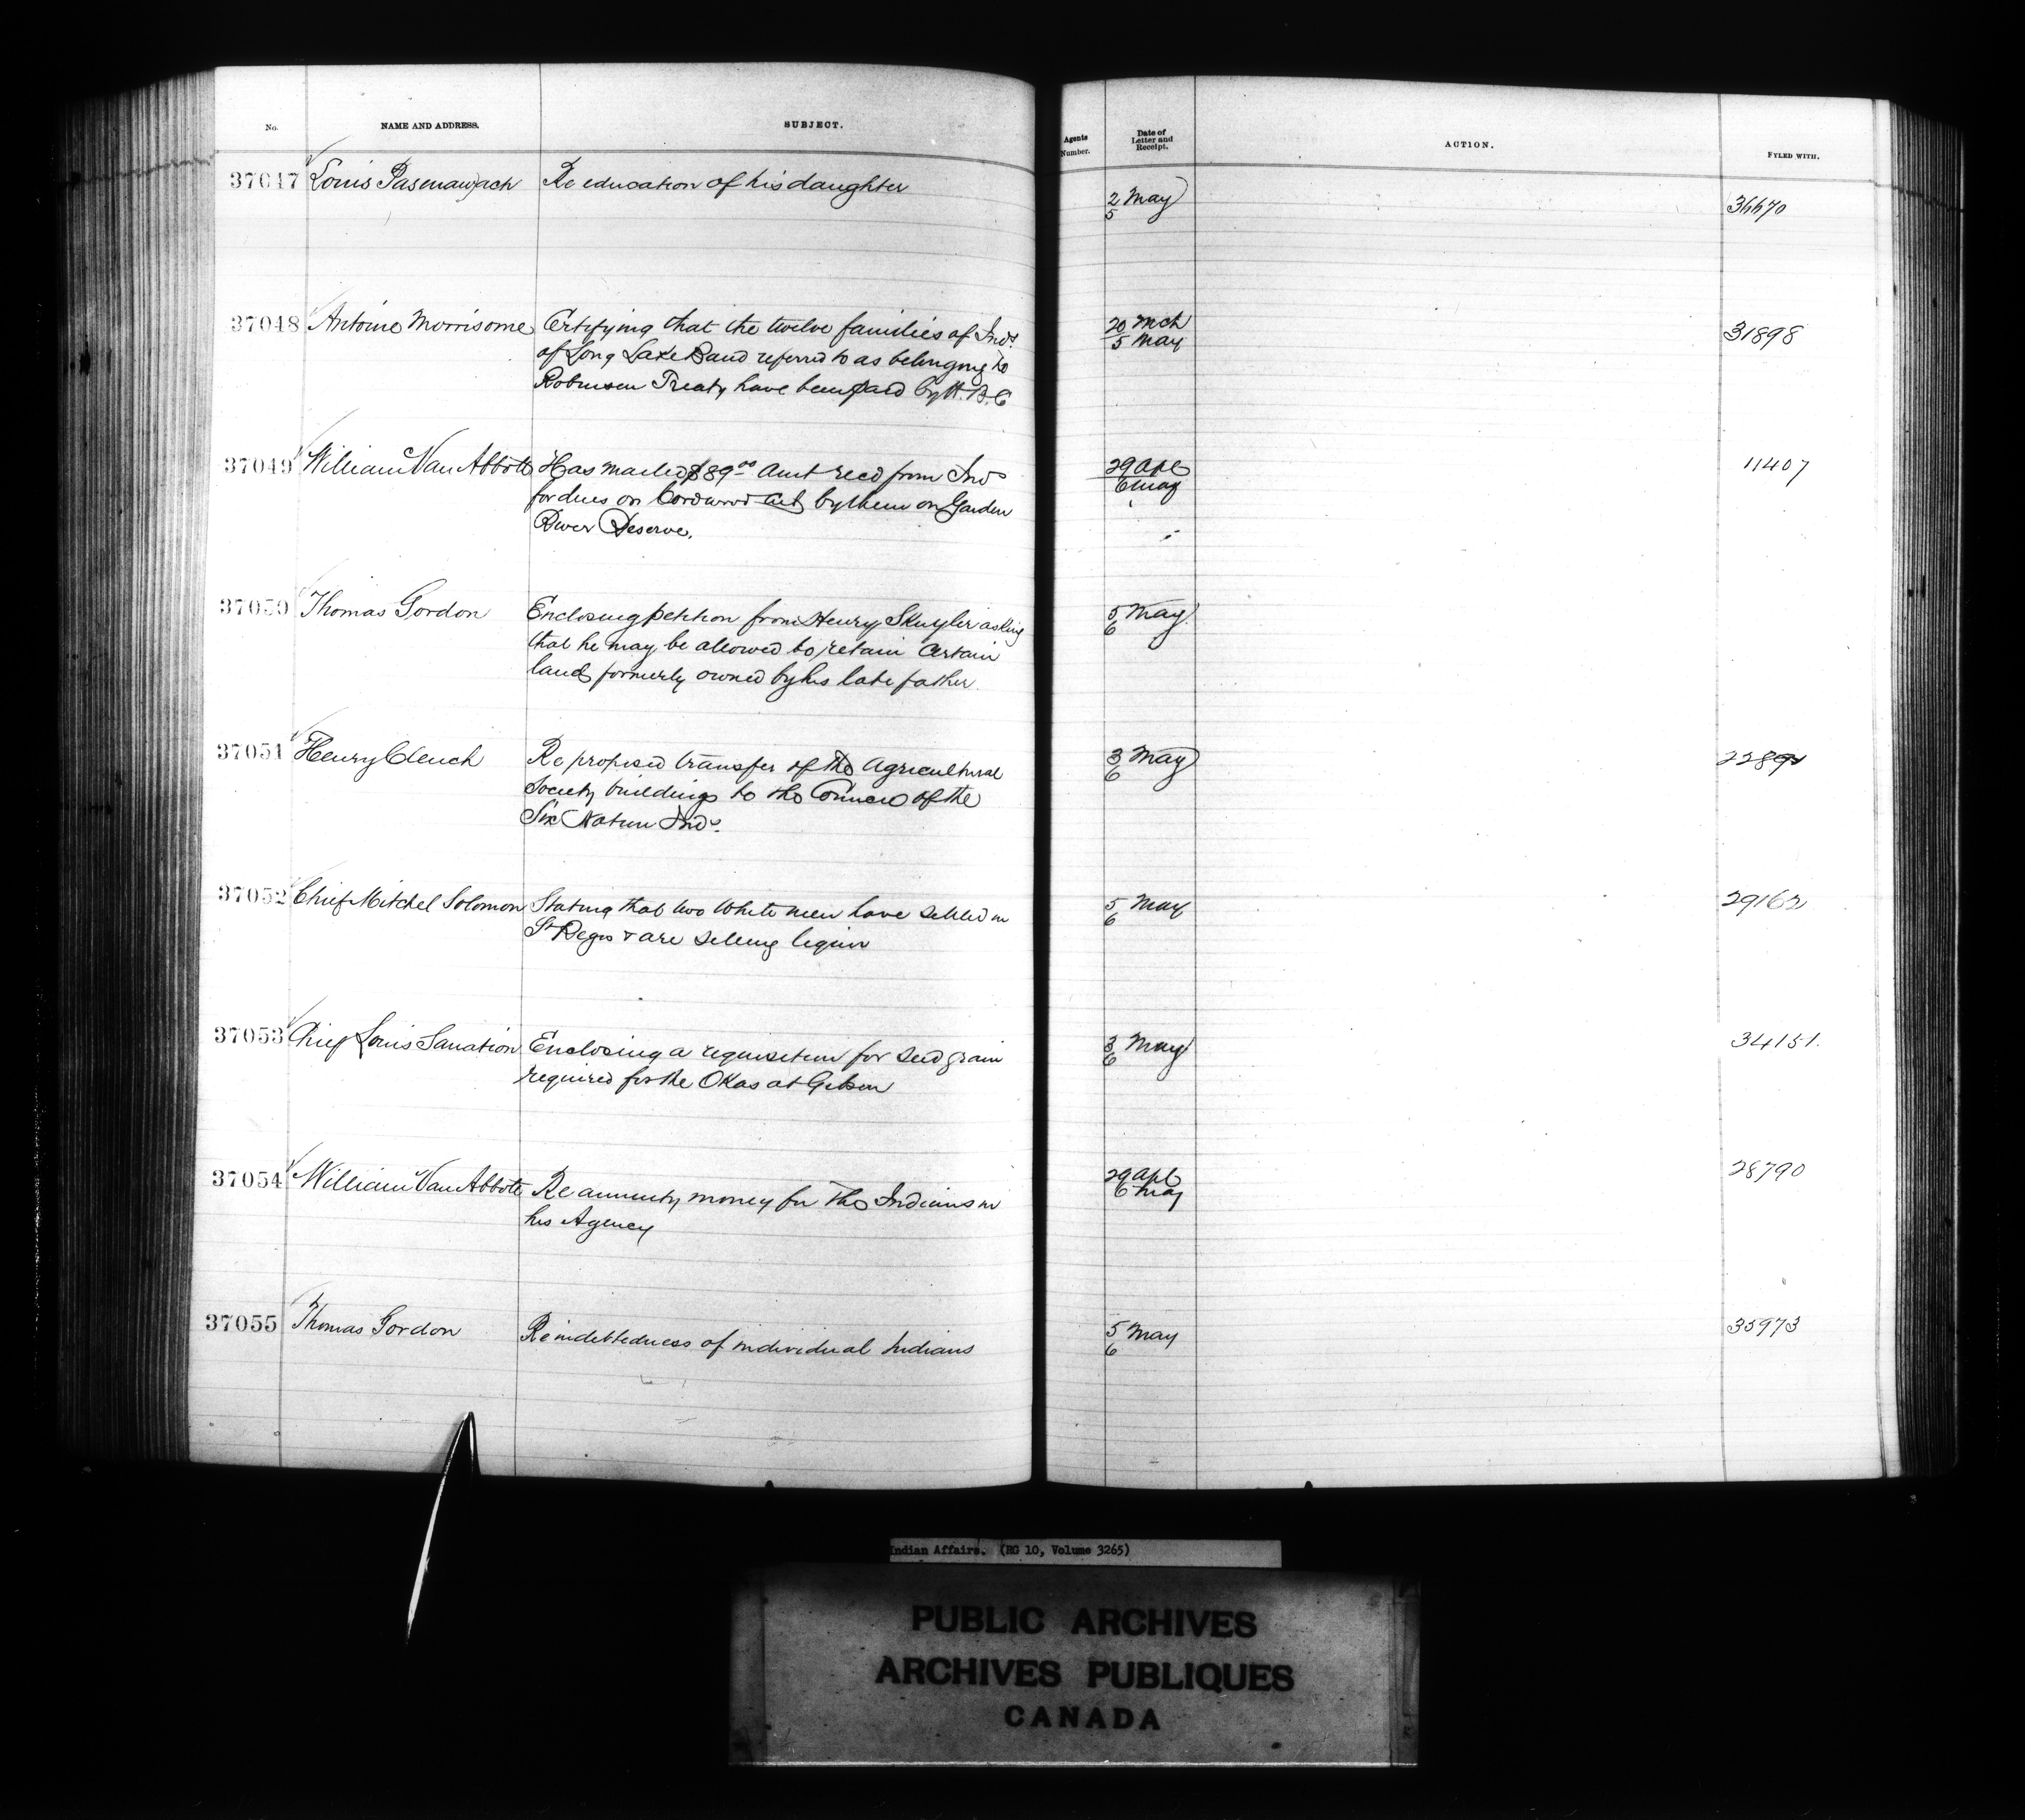 No. NAME AND ADDRESS. SUBJECT. Agents Number. Date of Letter and Receipt. ACTION. FYLED WITH.
37047 Louis Pasenawjach Re education of his daughter 2 May 5 36670
37048 Antoine Morrisome Certifying that the twelve families of Inds 20 Mch 31898
of Long Lake Band referred to as belonging to 5 May
Robinson Treaty have been paid by H.B.C
37049 William Van Abbott Has mailed $89.00 Amt recd from Inds 29 Apl 11407
for dues on Cordwood cut by them on Garden 6 May
River Reserve.
37050 Thomas Gordon Enclosing petition from Henry Skuyler asking 5 May
that he may be allowed to retain Certain 6
land formerly owned by his late father.
37051 Henry Clench Re proposed transfer of the Agricultural 3 May
Society buildings to the Council of the 6
Six Nation Inds.
37052 Chief Mitchel Solomon Stating that two White men have settled in 5 May 29162
St Regis & are selling liquor 6
37053 Chief Louis Sanation Enclosing a requisition for seed grain 3 May 34151.
required for the Okas at Gibson 6
37054 William Van Abbott Re annuity money for the Indians in 29 Apl 28790
his Agency 6 May
37055 Thomas Gordon Re indebtedness of individual Indians 5 May 35973
6
Indian Affairs. (RG 10, Volume 3265)
PUBLIC ARCHIVES
ARCHIVES PUBLIQUES
CANADA